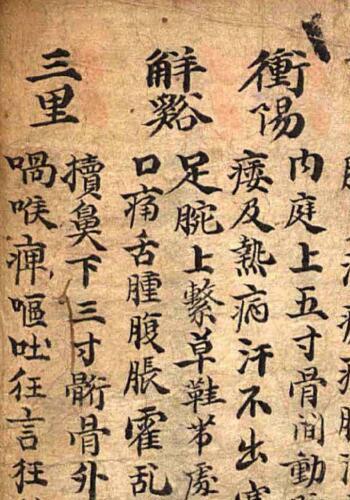 衝陽
内庭上五寸骨間動
痿及熱病汗不出
解谿
足腕上繫草鞋帶處
口痛舌腫腹脹霍乱
三里
犢鼻下三寸䯒骨外
喎喉痺嘔吐狂言狂